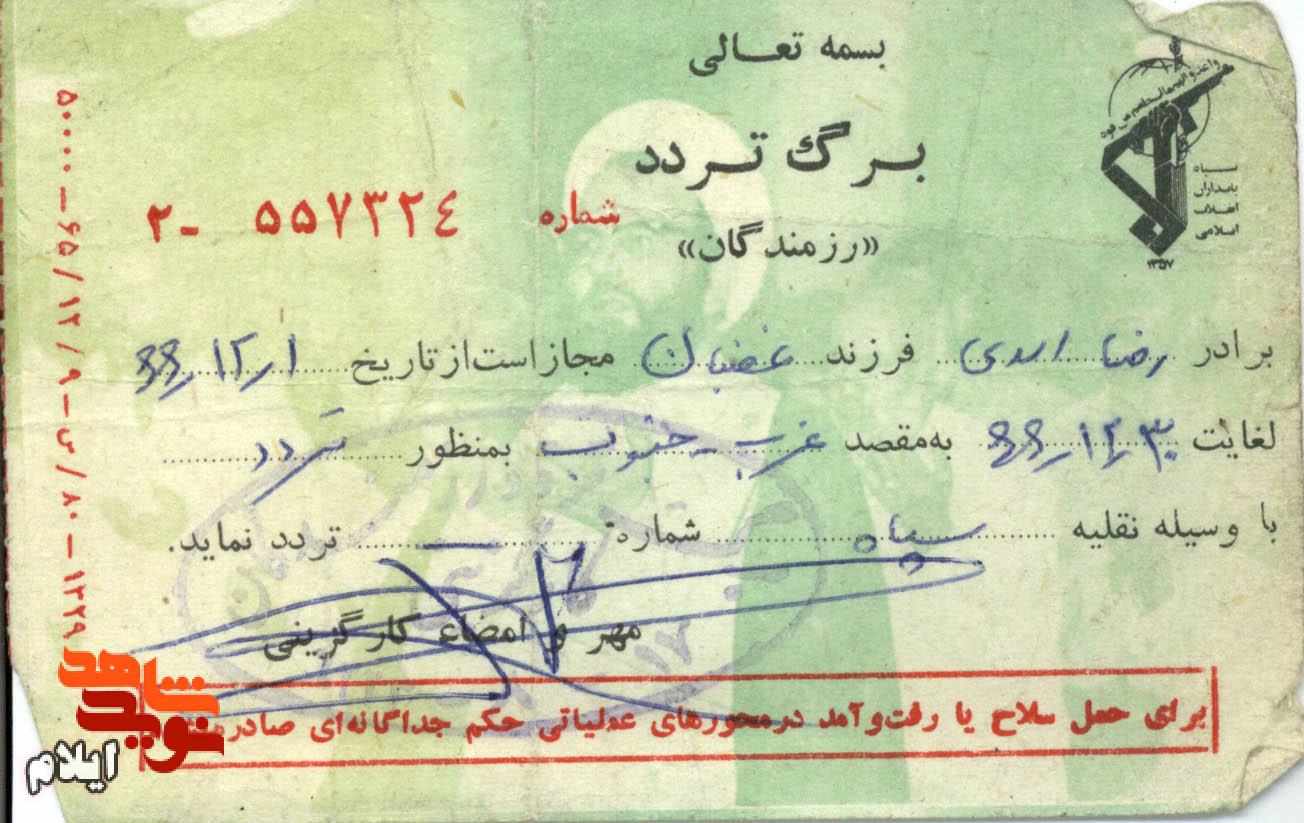 بسمه تعالی
برگ تردد
«رزمندگان»
شماره ۵۵۷۳۲٤ -۲
سپاه
پاسداران
انقلاب
اسلامی
۱۳۵۷
برادر رضا اسدی فرزند غضبان مجاز است از تاریخ ۱ر۱۲ر۶۶
لغایت ۳۰ر۱۲ر۶۶ به‌مقصد غرب - جنوب بمنظور تردد
با وسیله نقلیه سپاه شماره — تردد نماید.
مهر و امضاء کارگزینی
برای حمل سلاح یا رفت‌و‌آمد درمحورهای عملیاتی حکم جداگانه‌ای صادر
۵۰۰۰۰ - ۶۵/۱۲/۹ - س/۸۰ - ۱۳۲۹
نوید شاهد
ایلام